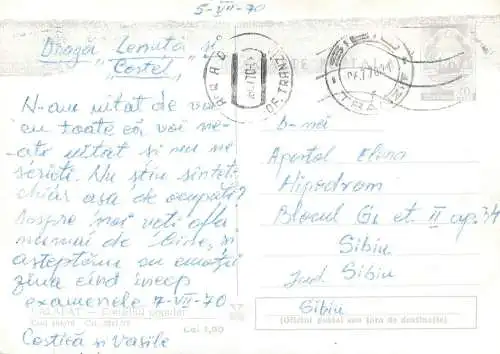 5-VII-70
Dragă Lenuță și
"Costel"
N-am uitat de voi
cu toate că voi ne-
ați uitat și nu ne
scrieți. Nu știu sînteți
chiar așa de ocupați?
Despre noi veți afla
numai de bine, și
așteptăm cu emoții
ziua cînd încep
examenele 7-VII-70
CALAFAT – Consiliul popular
Lei 1,00
Costică și Vasile
ARAD
OF. TRANZ
TRANZ
D-nă
Apostol Elena
Hipodrom
Blocul G1 et. II ap. 34
Sibiu
Jud. Sibiu
Sibiu
(Oficiul poștal sau țara de destinație)